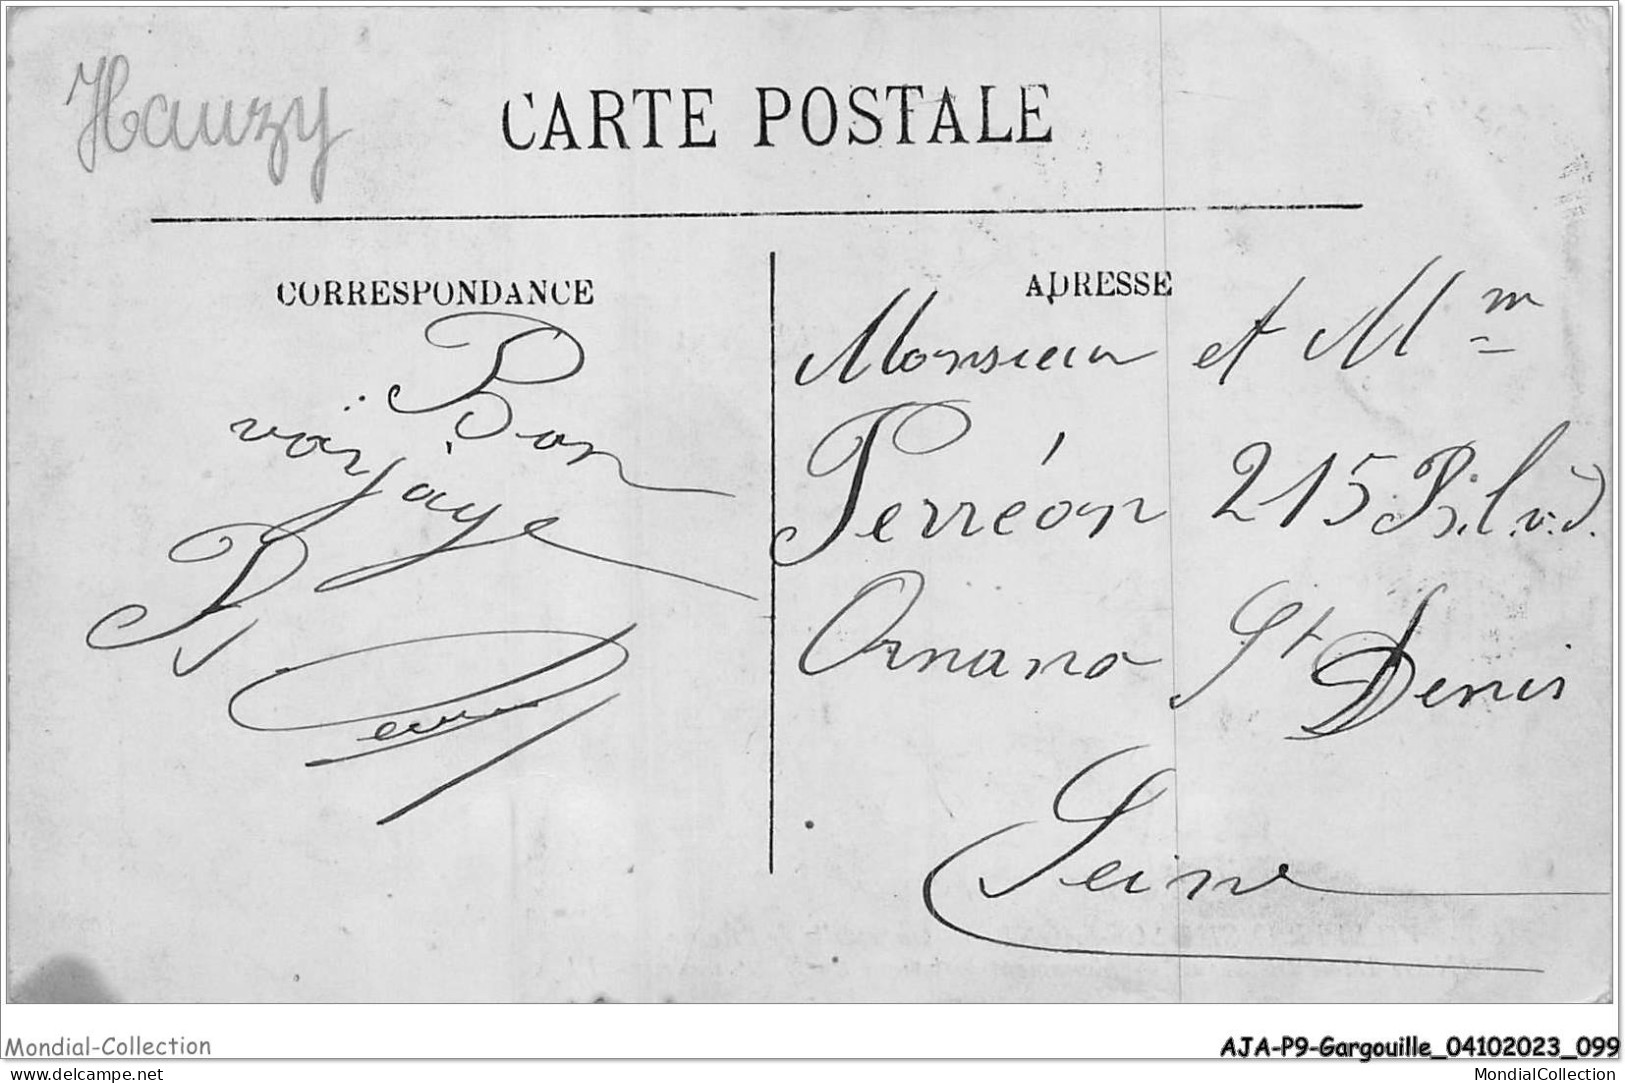 Hauzy
CARTE POSTALE
CORRESPONDANCE
Bon
voyage
ADRESSE
Monsieur et Mm
Perréon 215 B.lv.d.
Ornano St Denis
Seine
Mondial-Collection
AJA-P9-Gargouille_04102023_099
www.delcampe.net
MondialCollection